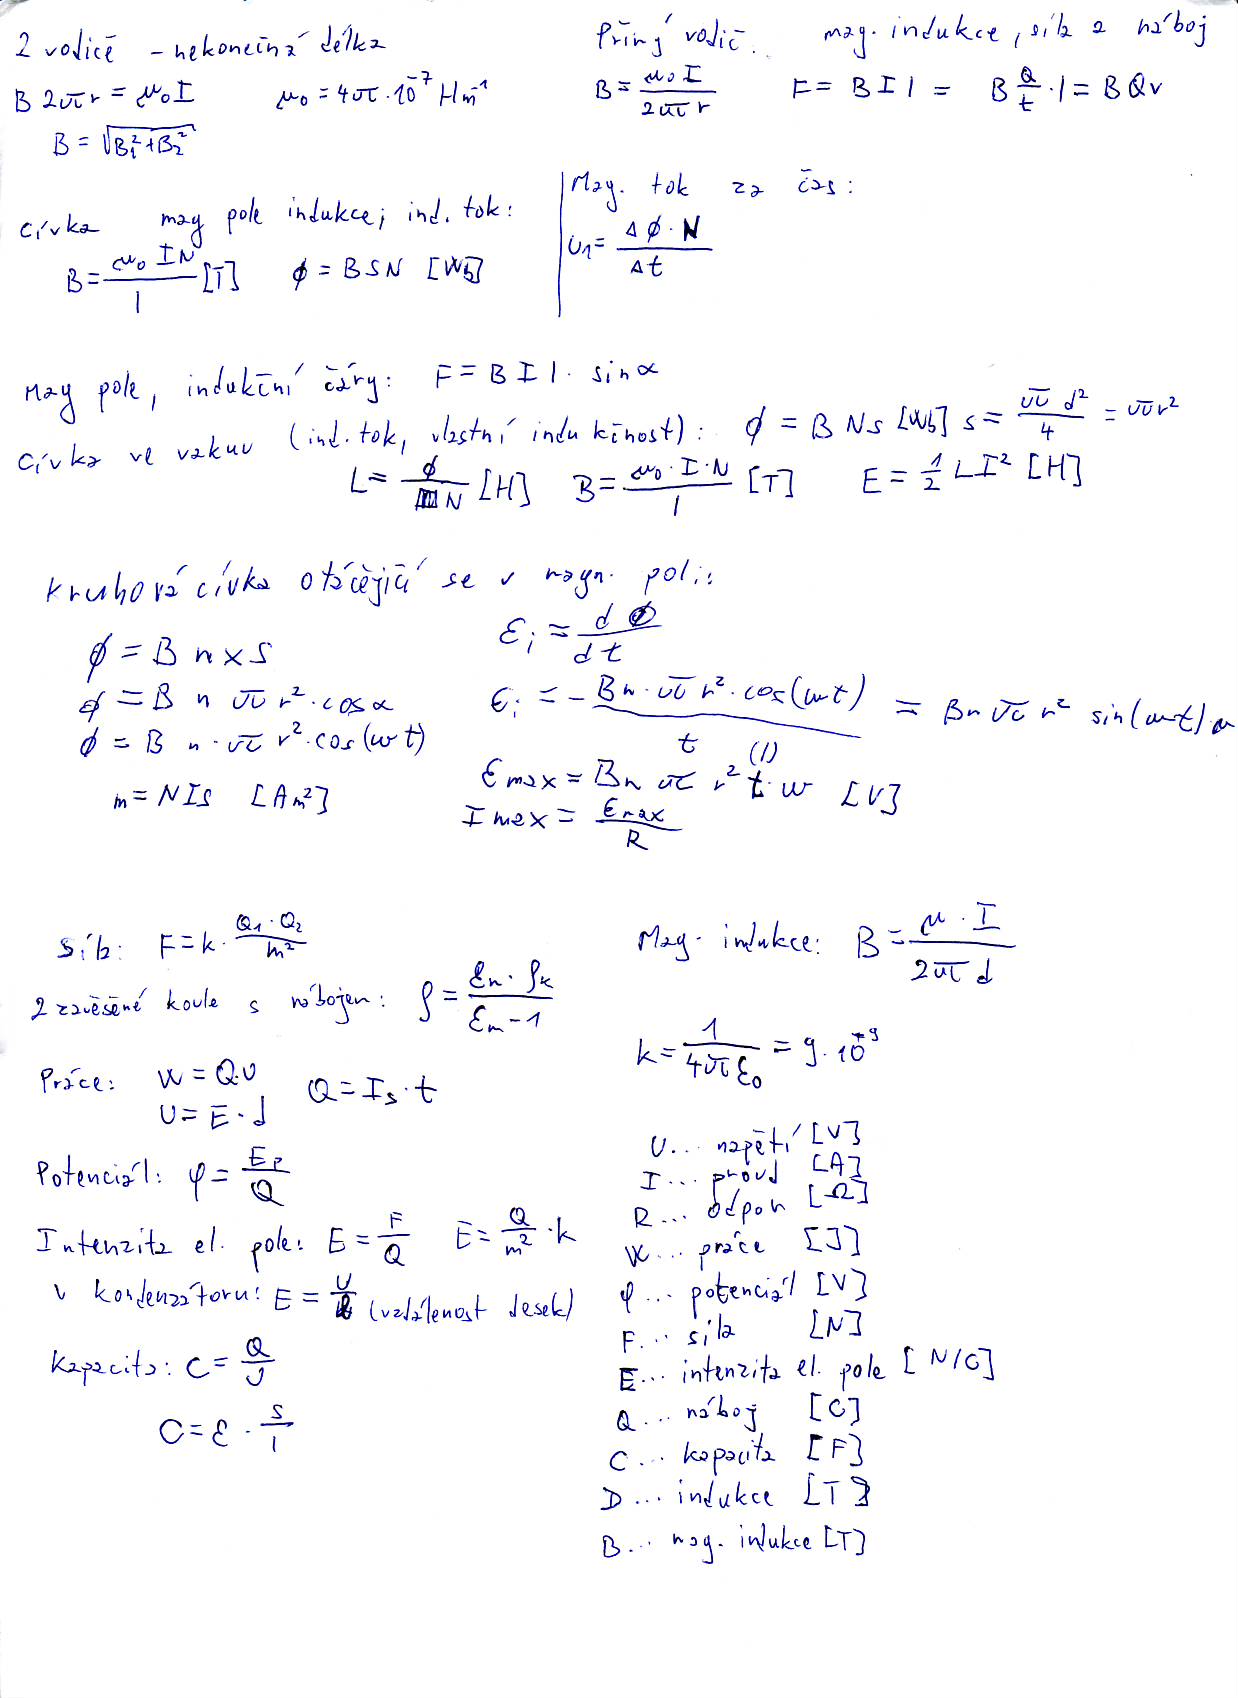 2 vodiče - nekonečná délka
B 2π r = μ₀ I μ₀ = 4π · 10⁻⁷ Hm⁻¹
B = √(B₁² + B₂²)
Přímý vodič. mag. indukce, síla a náboj
B = μ₀ I / 2π r F = B I l = B Q/t · l = B Q v
Cívka mag pole indukce; ind. tok:
B = μ₀ I N / l [T] ϕ = B S N [Wb]
Mag. tok za čas:
U₁ = Δϕ · N / Δt
Mag pole, indukční čáry: F = B I l · sin α
Cívka ve vakuu (ind. tok, vlastní indukčnost): ϕ = B N s [Wb] s = π d² / 4 = π r²
L = ϕ / N [H] B = μ₀ · I · N / l [T] E = 1/2 L I² [H]
Kruhová cívka otáčející se v magn. poli:
ϕ = B n x S
ϕ = B n π r² · cos α
ϕ = B n · π r² · cos(ω t)
m = N I s [A m²]
ε_i = d ϕ / d t
ε_i = - B n · π r² · cos(ωt) / t = B n π r² sin(ωt) ω
(1)
ε max = B n π r² t · ω [V]
I max = ε max / R
Síla: F = k · Q₁ · Q₂ / m²
2 zavěšené koule s nábojem: ρ = ε_n · ρ_k / ε_m - 1
Práce: W = Q.U Q = I_s · t
U = E · d
Potenciál: φ = E_p / Q
Intenzita el. pole: E = F / Q E = Q / m² · k
v kondenzátoru: E = U / (vzdálenost desek)
Kapacita: C = Q / U
C = ε · S / l
Mag. indukce: B = μ · I / 2π d
k = 1 / 4π ε₀ = 9 · 10⁺⁹
U... napětí [V]
I... proud [A]
R... odpor [Ω]
W... práce [J]
φ... potenciál [V]
F... síla [N]
E... intenzita el. pole [N/C]
Q... náboj [C]
C... kapacita [F]
D... indukce [T]
B... mag. indukce [T]